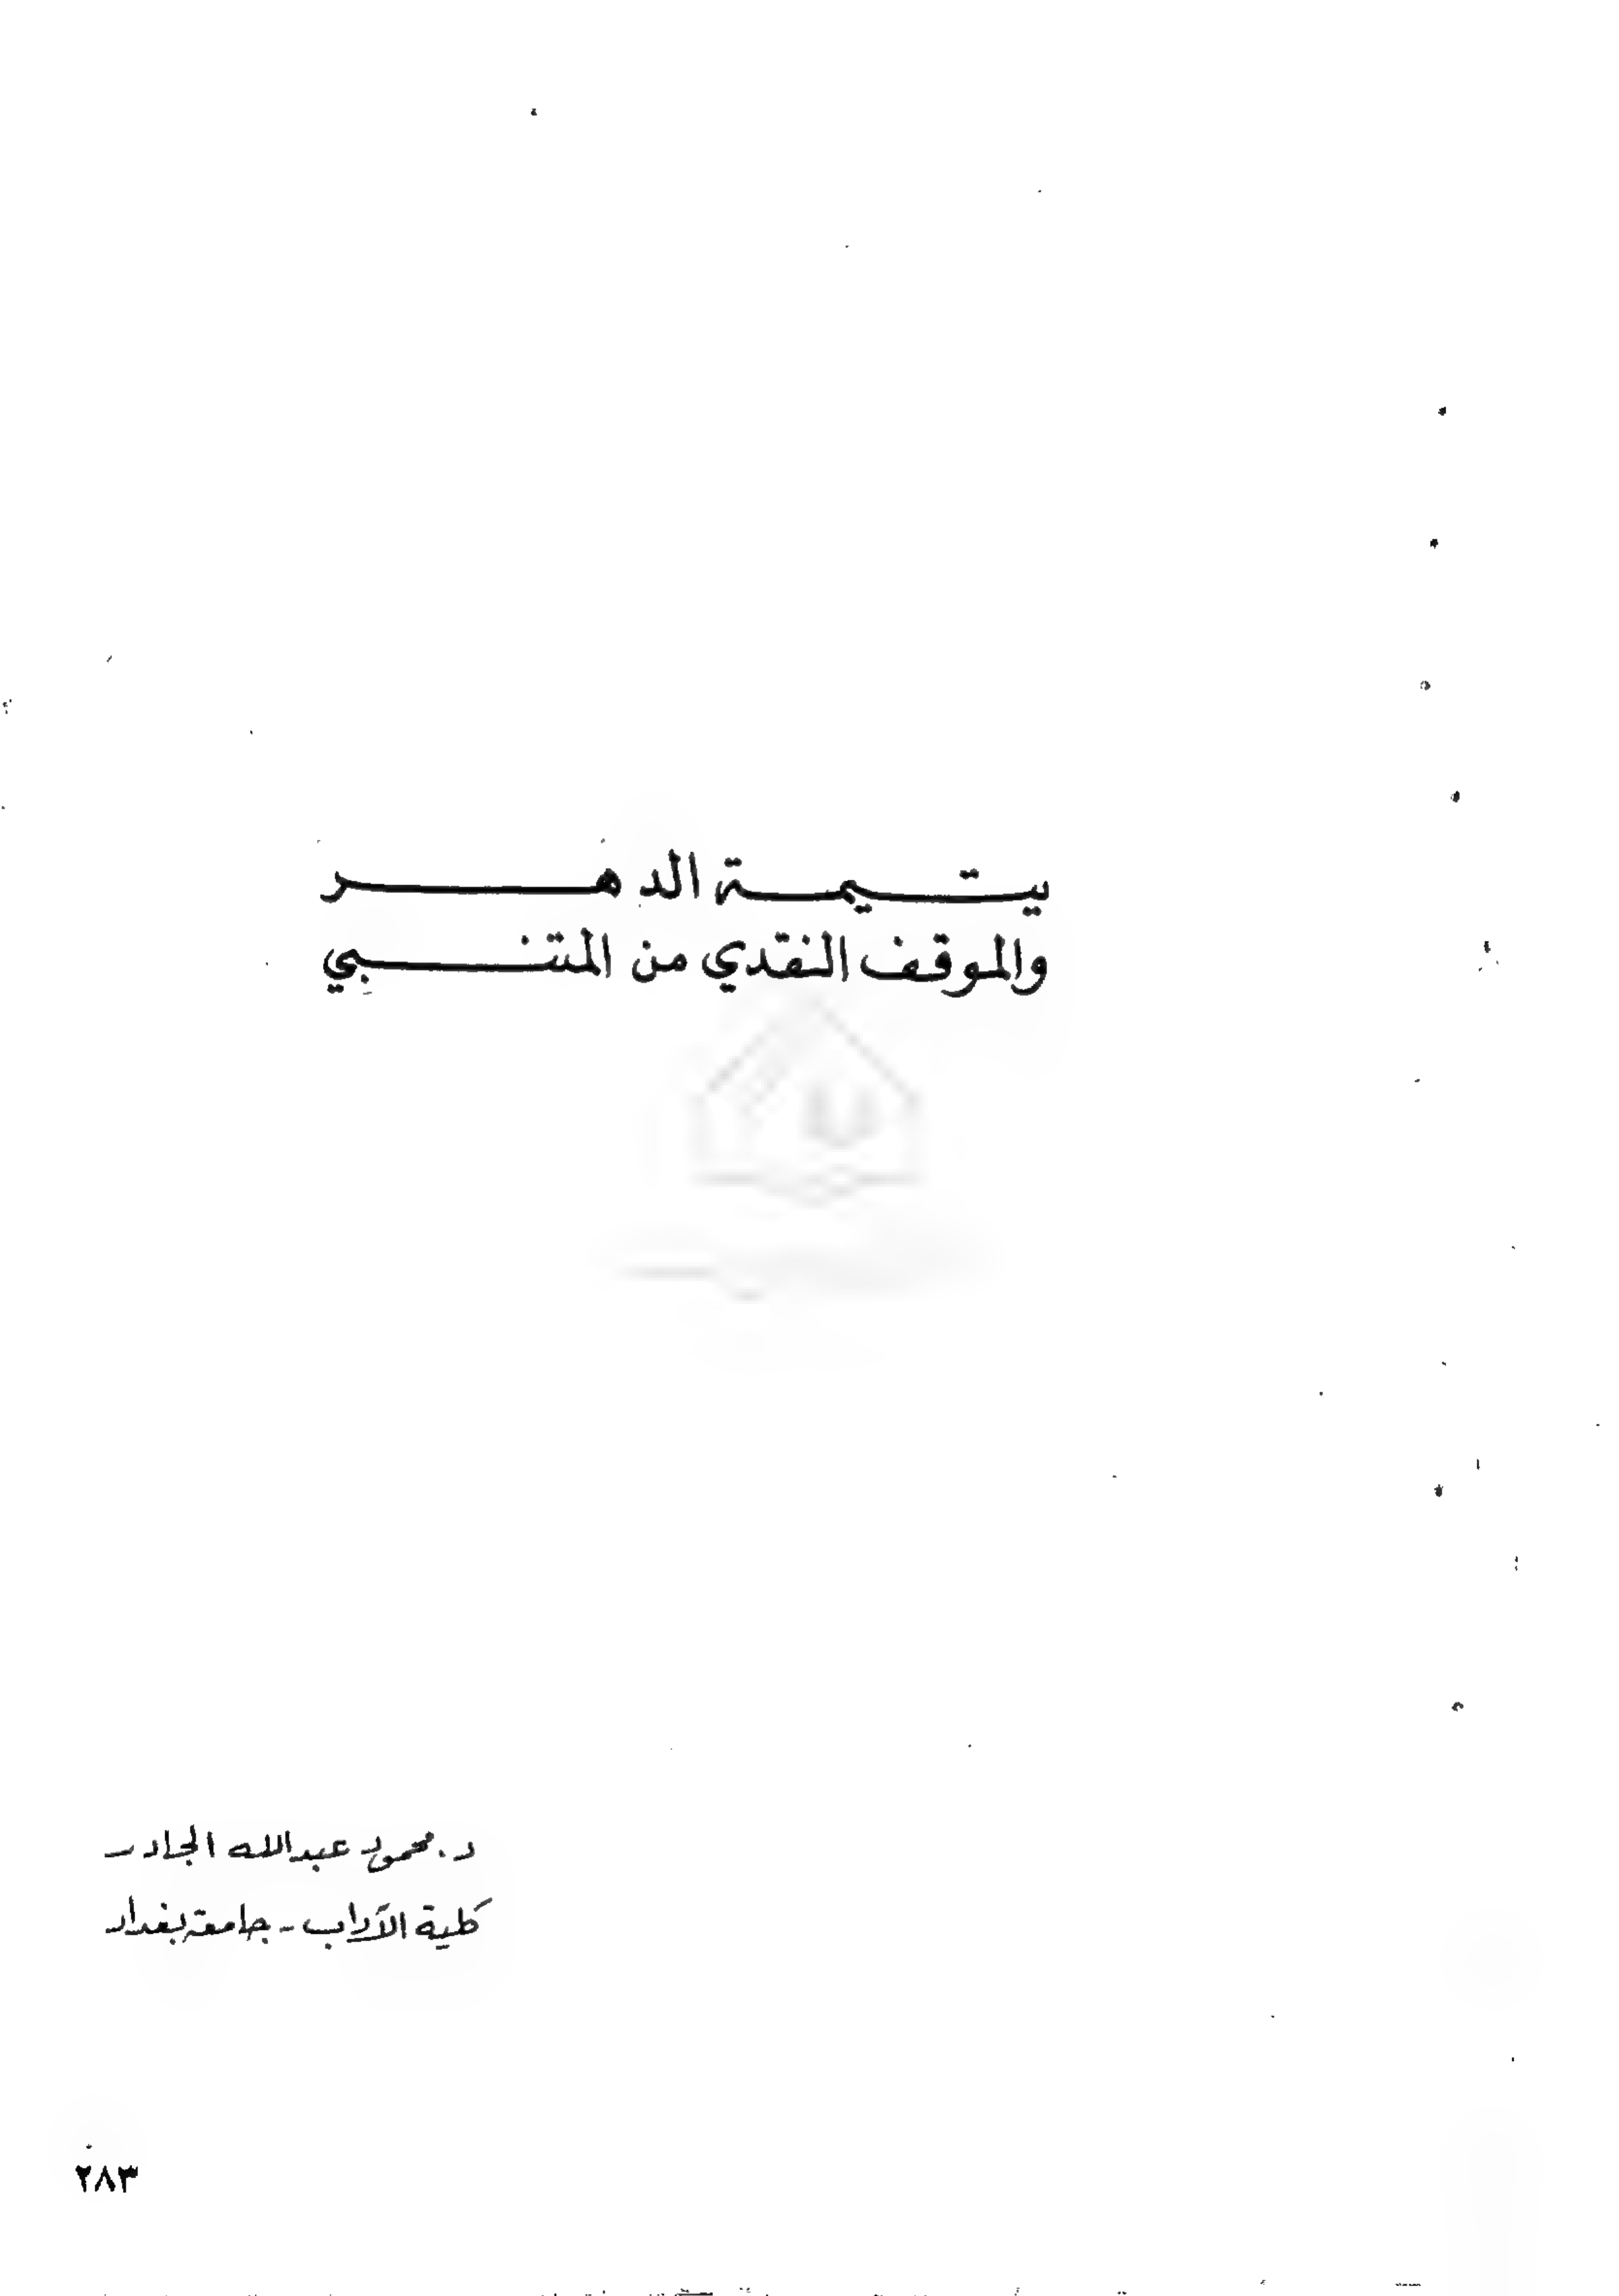 يتيمة الدهر
والموقف النقدي من المتنبي
د. محمود عبدالله الجادر
كلية الآداب - جامعة بغداد
٢٨٣